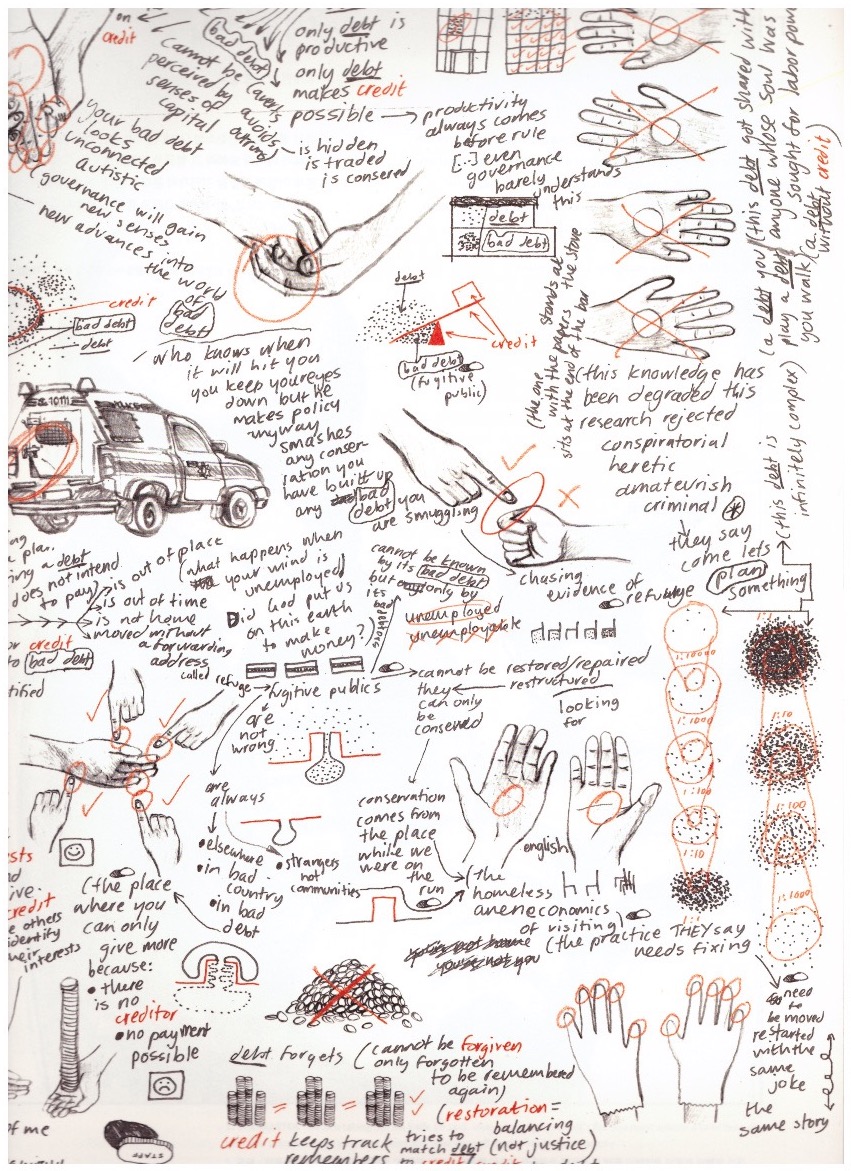 on
credit
cannot be (averts
perceived by avoids
senses of outruns)
capital
bad debt
only debt is
productive
only debt
makes credit
possible → productivity
always comes
before rule
[..] even
governance
barely understands
this
is hidden
is traded
is conserved
your bad debt
looks
unconnected
autistic
(governance will gain
new senses
new advances into
the world
of
bad
debt)
debt
bad debt
credit
bad debt
debt
debt
credit
bad debt
(fugitive
public)
(the one stands at
with the papers the stove
sits at the end of the bar
(a debt you (this debt got shared with
play a debt anyone whose soul was
sought for labor power
you walk (a debt
without credit)
who knows when
it will hit you
you keep your eyes
down but he
makes policy
anyway
smashes
any conser-
ration you
have built up
any bad
debt you
are smuggling
(this knowledge has
been degraded this
research rejected
conspiratorial
heretic
amateurish
criminal
they say
come lets
plan
something
(this debt is
infinitely complex)
10111
a plan.
a debt
does not intend
to pay)
is out of place
is out of time
is not home
moved without
a forwarding
address
or credit
to bad debt
(what happens when
your mind is
unemployed)
Did God put us
on this earth
to make
money?)
cannot be known
by its bad debt
but only by
its
bad
debtors
chasing
evidence of refuge
unemployed
unemployable
called refuge
fugitive publics
are
not
wrong
are
always
• elsewhere
• in bad
country
• in bad
debt
• strangers
not
communities
cannot be restored/repaired
restructured
they
can only
be
conserved
looking
for
conservation
comes from
the place
while we
were on
the
run
english
(the
homeless
aneneconomics
of visiting
(the practice THEY say
needs fixing
you're not home
you're not you
1:10000
1:1000
1:100
1:10
1:1
1:1
1:10
1:100
1:1000
credit
others
identify
their
interests
(the place
where you
can only
give more
because:
• there
is no
creditor
• no payment
possible
debt forgets (cannot be forgiven
only forgotten
to be remembered
again)
(restoration =
balancing
(not justice)
credit keeps track tries to
match debt
remembers to credit
need
to
be moved
restarted
with the
same
joke
the
same story
of me